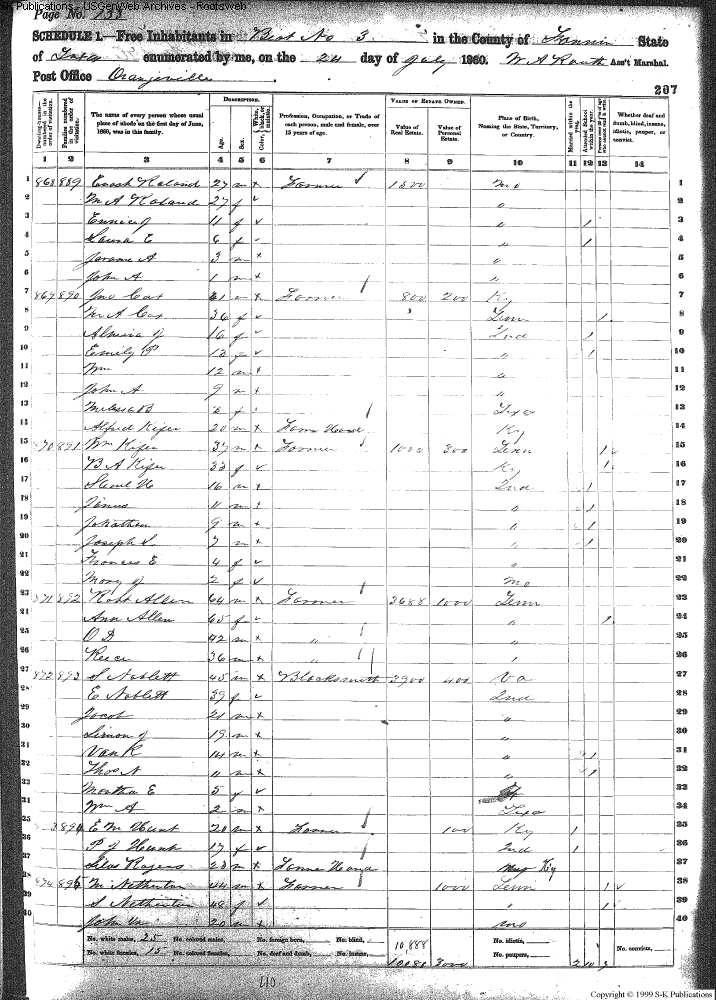 S-K Publications - USGenWeb Archives - Rootsweb
Page No. 133
SCHEDULE 1.—Free Inhabitants in Beat No 3 in the County of Fannin State
of Texas enumerated by me, on the 24 day of July 1860. Ass't Marshal.
Post Office Orangeville
207
DESCRIPTION. VALUE OF ESTATE OWNED.
Dwelling-houses—numbered in the order of visitation. Families numbered in the order of visitation. The name of every person whose usual place of abode on the first day of June, 1860, was in this family. Age. Sex. Color, White, black, or mulatto. Profession, Occupation, or Trade of each person, male and female, over 15 years of age. Value of Real Estate. Value of Personal Estate. Place of Birth, Naming the State, Territory, or Country. Married within the year. Attended School within the year. Whether deaf and dumb, blind, insane, idiotic, pauper, or convict.
1 2 3 4 5 6 7 8 9 10 11 12 13 14
1 868 889 27 m Farmer 1500 Mo 1
2 M A 27 f " 2
3 11 f " 1 3
4 Laura E 6 f " 1 4
5 Jerome A 3 m " 5
6 John A 1 m " 6
7 869 890 Jno Cox 41 m Farmer 800 200 Ky 7
8 M A Cox 36 f Tenn 1 8
9 Almira J 16 f Ind 1 9
10 Emily 13 f " 1 10
11 Wm 12 m " 11
12 John A 9 m " 12
13 Melissa B f Texas 13
14 Alfred Kifer 20 m Farm Hand Ky 14
15 870 891 Wm Kifer 37 m Farmer 1000 300 Tenn 1 15
16 B A Kifer 33 f Ky 1 16
17 16 m Ind 1 17
18 11 m " 1 18
19 Johathan 9 m " 1 19
20 Joseph S 7 m " 1 20
21 Frances E 4 f " 21
22 Mary J 2 f Mo 22
23 871 892 Robt Allen 64 m Farmer 3688 1000 Tenn 23
24 Ann Allen 65 f " 1 24
25 O D 42 m " " 25
26 Reece 36 m " " 26
27 872 893 S Noblett 45 m Blacksmith 3900 400 Va 27
28 E Noblett 39 f Ind 28
29 Jacob 21 m " 29
30 Simon J 19 m " 30
31 Van R 14 m " 1 31
32 Thos N 11 m " 1 32
33 Martha E 5 f 33
34 Wm A 2 m Texas 34
35 3 894 E M Hunt 20 m Farmer 100 Ky 1 35
36 P J Hunt 17 f Ind 1 36
37 Silas Rogers 23 m Farm Hand Ky 37
38 874 895 M Netherton 44 m Farmer 1000 Tenn 1 38
39 S Netherton 48 f " 1 39
40 John Wm 20 m Mo 40
No. white males, 25 No. colored males, No. foreign born, No. blind, 10,888 No. idiotic,
No. white females, 15 No. colored females, No. deaf and dumb, No. insane, 3000 No. paupers, 2 10 No. convicts,
Copyright © 1999 S-K Publications